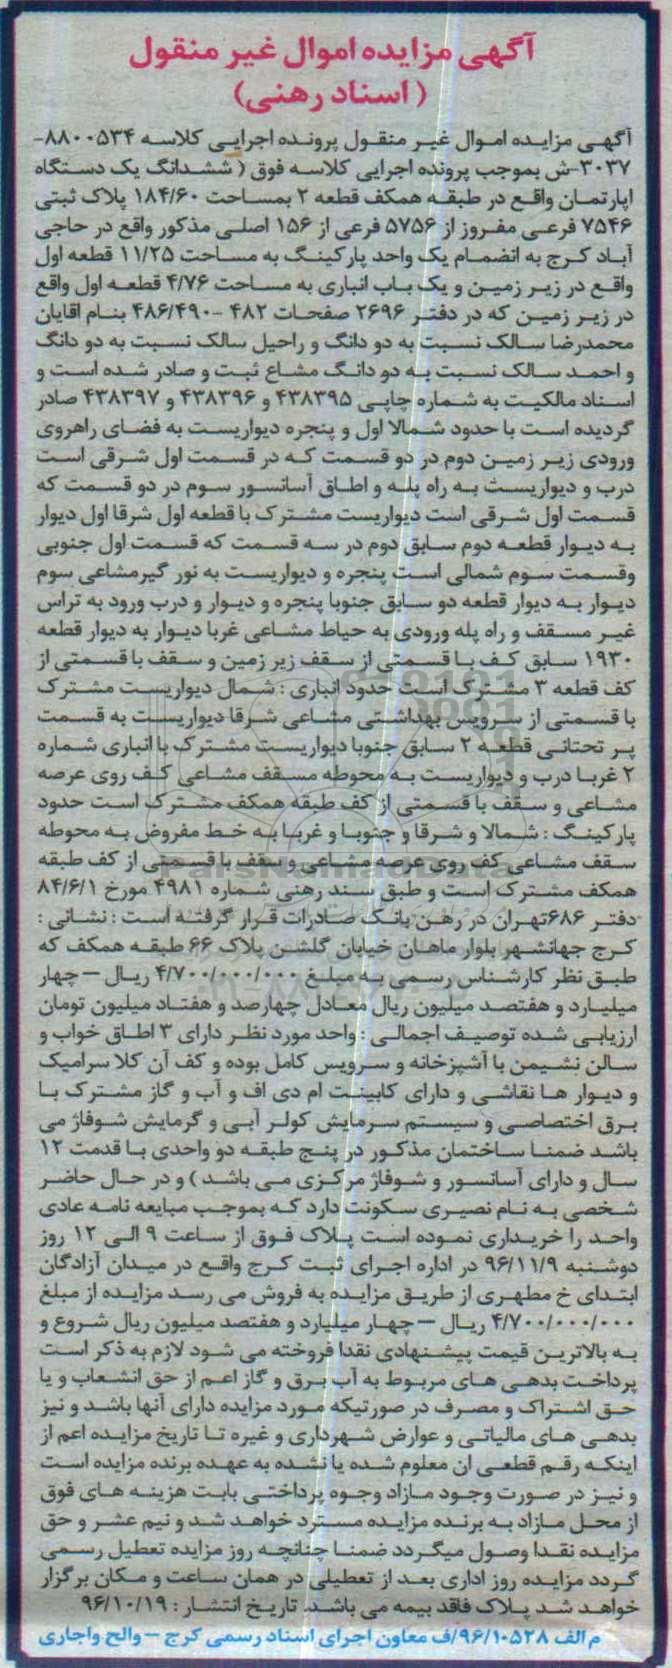 آگهی مزایده اموال غیر منقول
( اسناد رهنی)
آگهی مزایده اموال غیر منقول پرونده اجرایی کلاسه ۸۸۰۰۵۳۴-
۳۰۳۷-ش بموجب پرونده اجرایی کلاسه فوق ( ششدانگ یک دستگاه
اپارتمان واقع در طبقه همکف قطعه ۲ بمساحت ۱۸۴/۶۰ پلاک ثبتی
۷۵۴۶ فرعی مفروز از ۵۷۵۶ فرعی از ۱۵۶ اصلی مذکور واقع در حاجی
آباد کرج به انضمام یک واحد پارکینگ به مساحت ۱۱/۲۵ قطعه اول
واقع در زیر زمین و یک باب انباری به مساحت ۴/۷۶ قطعه اول واقع
در زیر زمین که در دفتر ۲۶۹۶ صفحات ۴۸۲ -۴۸۶/۴۹۰ بنام اقایان
محمدرضا سالک نسبت به دو دانگ و راحیل سالک نسبت به دو دانگ
و احمد سالک نسبت به دو دانگ مشاع ثبت و صادر شده است و
اسناد مالکیت به شماره چاپی ۴۳۸۳۹۵ و ۴۳۸۳۹۶ و ۴۳۸۳۹۷ صادر
گردیده است با حدود شمالا اول و پنجره دیواریست به فضای راهروی
ورودی زیر زمین دوم در دو قسمت که در قسمت اول شرقی است
درب و دیواریست به راه پله و اطاق آسانسور سوم در دو قسمت که
قسمت اول شرقی است دیواریست مشترک با قطعه اول شرقا اول دیوار
به دیوار قطعه دوم سابق دوم در سه قسمت که قسمت اول جنوبی
وقسمت سوم شمالی است پنجره و دیواریست به نور گیرمشاعی سوم
دیوار به دیوار قطعه دو سابق جنوبا پنجره و دیوار و درب ورود به تراس
غیر مسقف و راه پله ورودی به حیاط مشاعی غربا دیوار به دیوار قطعه
۱۹۳۰ سابق کف با قسمتی از سقف زیر زمین و سقف با قسمتی از
کف قطعه ۳ مشترک است حدود انباری : شمال دیواریست مشترک
با قسمتی از سرویس بهداشتی مشاعی شرقا دیواریست به قسمت
پر تحتانی قطعه ۲ سابق جنوبا دیواریست مشترک با انباری شماره
۲ غربا درب و دیواریست به محوطه مسقف مشاعی کف روی عرصه
مشاعی و سقف با قسمتی از کف طبقه همکف مشترک است حدود
پارکینگ : شمالا و شرقا و جنوبا و غربا به خط مفروض به محوطه
سقف مشاعی کف روی عرصه مشاعی و سقف با قسمتی از کف طبقه
همکف مشترک است و طبق سند رهنی شماره ۴۹۸۱ مورخ ۸۴/۶/۱
دفتر ۶۸۶تهران در رهن بانک صادرات قرار گرفته است : نشانی :
کرج جهانشهر بلوار ماهان خیابان گلشن پلاک ۶۶ طبقه همکف که
طبق نظر کارشناس رسمی به مبلغ ۴/۷۰۰/۰۰۰/۰۰۰ ریال – چهار
میلیارد و هفتصد میلیون ریال معادل چهارصد و هفتاد میلیون تومان
ارزیابی شده توصیف اجمالی : واحد مورد نظر دارای ۳ اطاق خواب و
سالن نشیمن با آشپزخانه و سرویس کامل بوده و کف آن کلا سرامیک
و دیوار ها نقاشی و دارای کابینت ام دی اف و آب و گاز مشترک با
برق اختصاصی و سیستم سرمایش کولر آبی و گرمایش شوفاژ می
باشد ضمنا ساختمان مذکور در پنج طبقه دو واحدی با قدمت ۱۲
سال و دارای آسانسور و شوفاژ مرکزی می باشد ) و در حال حاضر
شخصی به نام نصیری سکونت دارد که بموجب مبایعه نامه عادی
واحد را خریداری نموده است پلاک فوق از ساعت ۹ الی ۱۲ روز
دوشنبه ۹۶/۱۱/۹ در اداره اجرای ثبت کرج واقع در میدان آزادگان
ابتدای خ مطهری از طریق مزایده به فروش می رسد مزایده از مبلغ
۴/۷۰۰/۰۰۰/۰۰۰ ریال – چهار میلیارد و هفتصد میلیون ریال شروع و
به بالاترین قیمت پیشنهادی نقدا فروخته می شود لازم به ذکر است
پرداخت بدهی های مربوط به آب برق و گاز اعم از حق انشعاب و یا
حق اشتراک و مصرف در صورتیکه مورد مزایده دارای آنها باشد و نیز
بدهی های مالیاتی و عوارض شهرداری و غیره تا تاریخ مزایده اعم از
اینکه رقم قطعی ان معلوم شده یا نشده به عهده برنده مزایده است
و نیز در صورت وجود مازاد وجوه پرداختی بابت هزینه های فوق
از محل مازاد به برنده مزایده مسترد خواهد شد و نیم عشر و حق
مزایده نقدا وصول میگردد ضمنا چنانچه روز مزایده تعطیل رسمی
گردد مزایده روز اداری بعد از تعطیلی در همان ساعت و مکان برگزار
خواهد شد پلاک فاقد بیمه می باشد. تاریخ انتشار : ۹۶/۱۰/۱۹
م الف ۹۶/۱۰۵۲۸/ف معاون اجرای اسناد رسمی کرج – والح واجاری
ParsNamadData